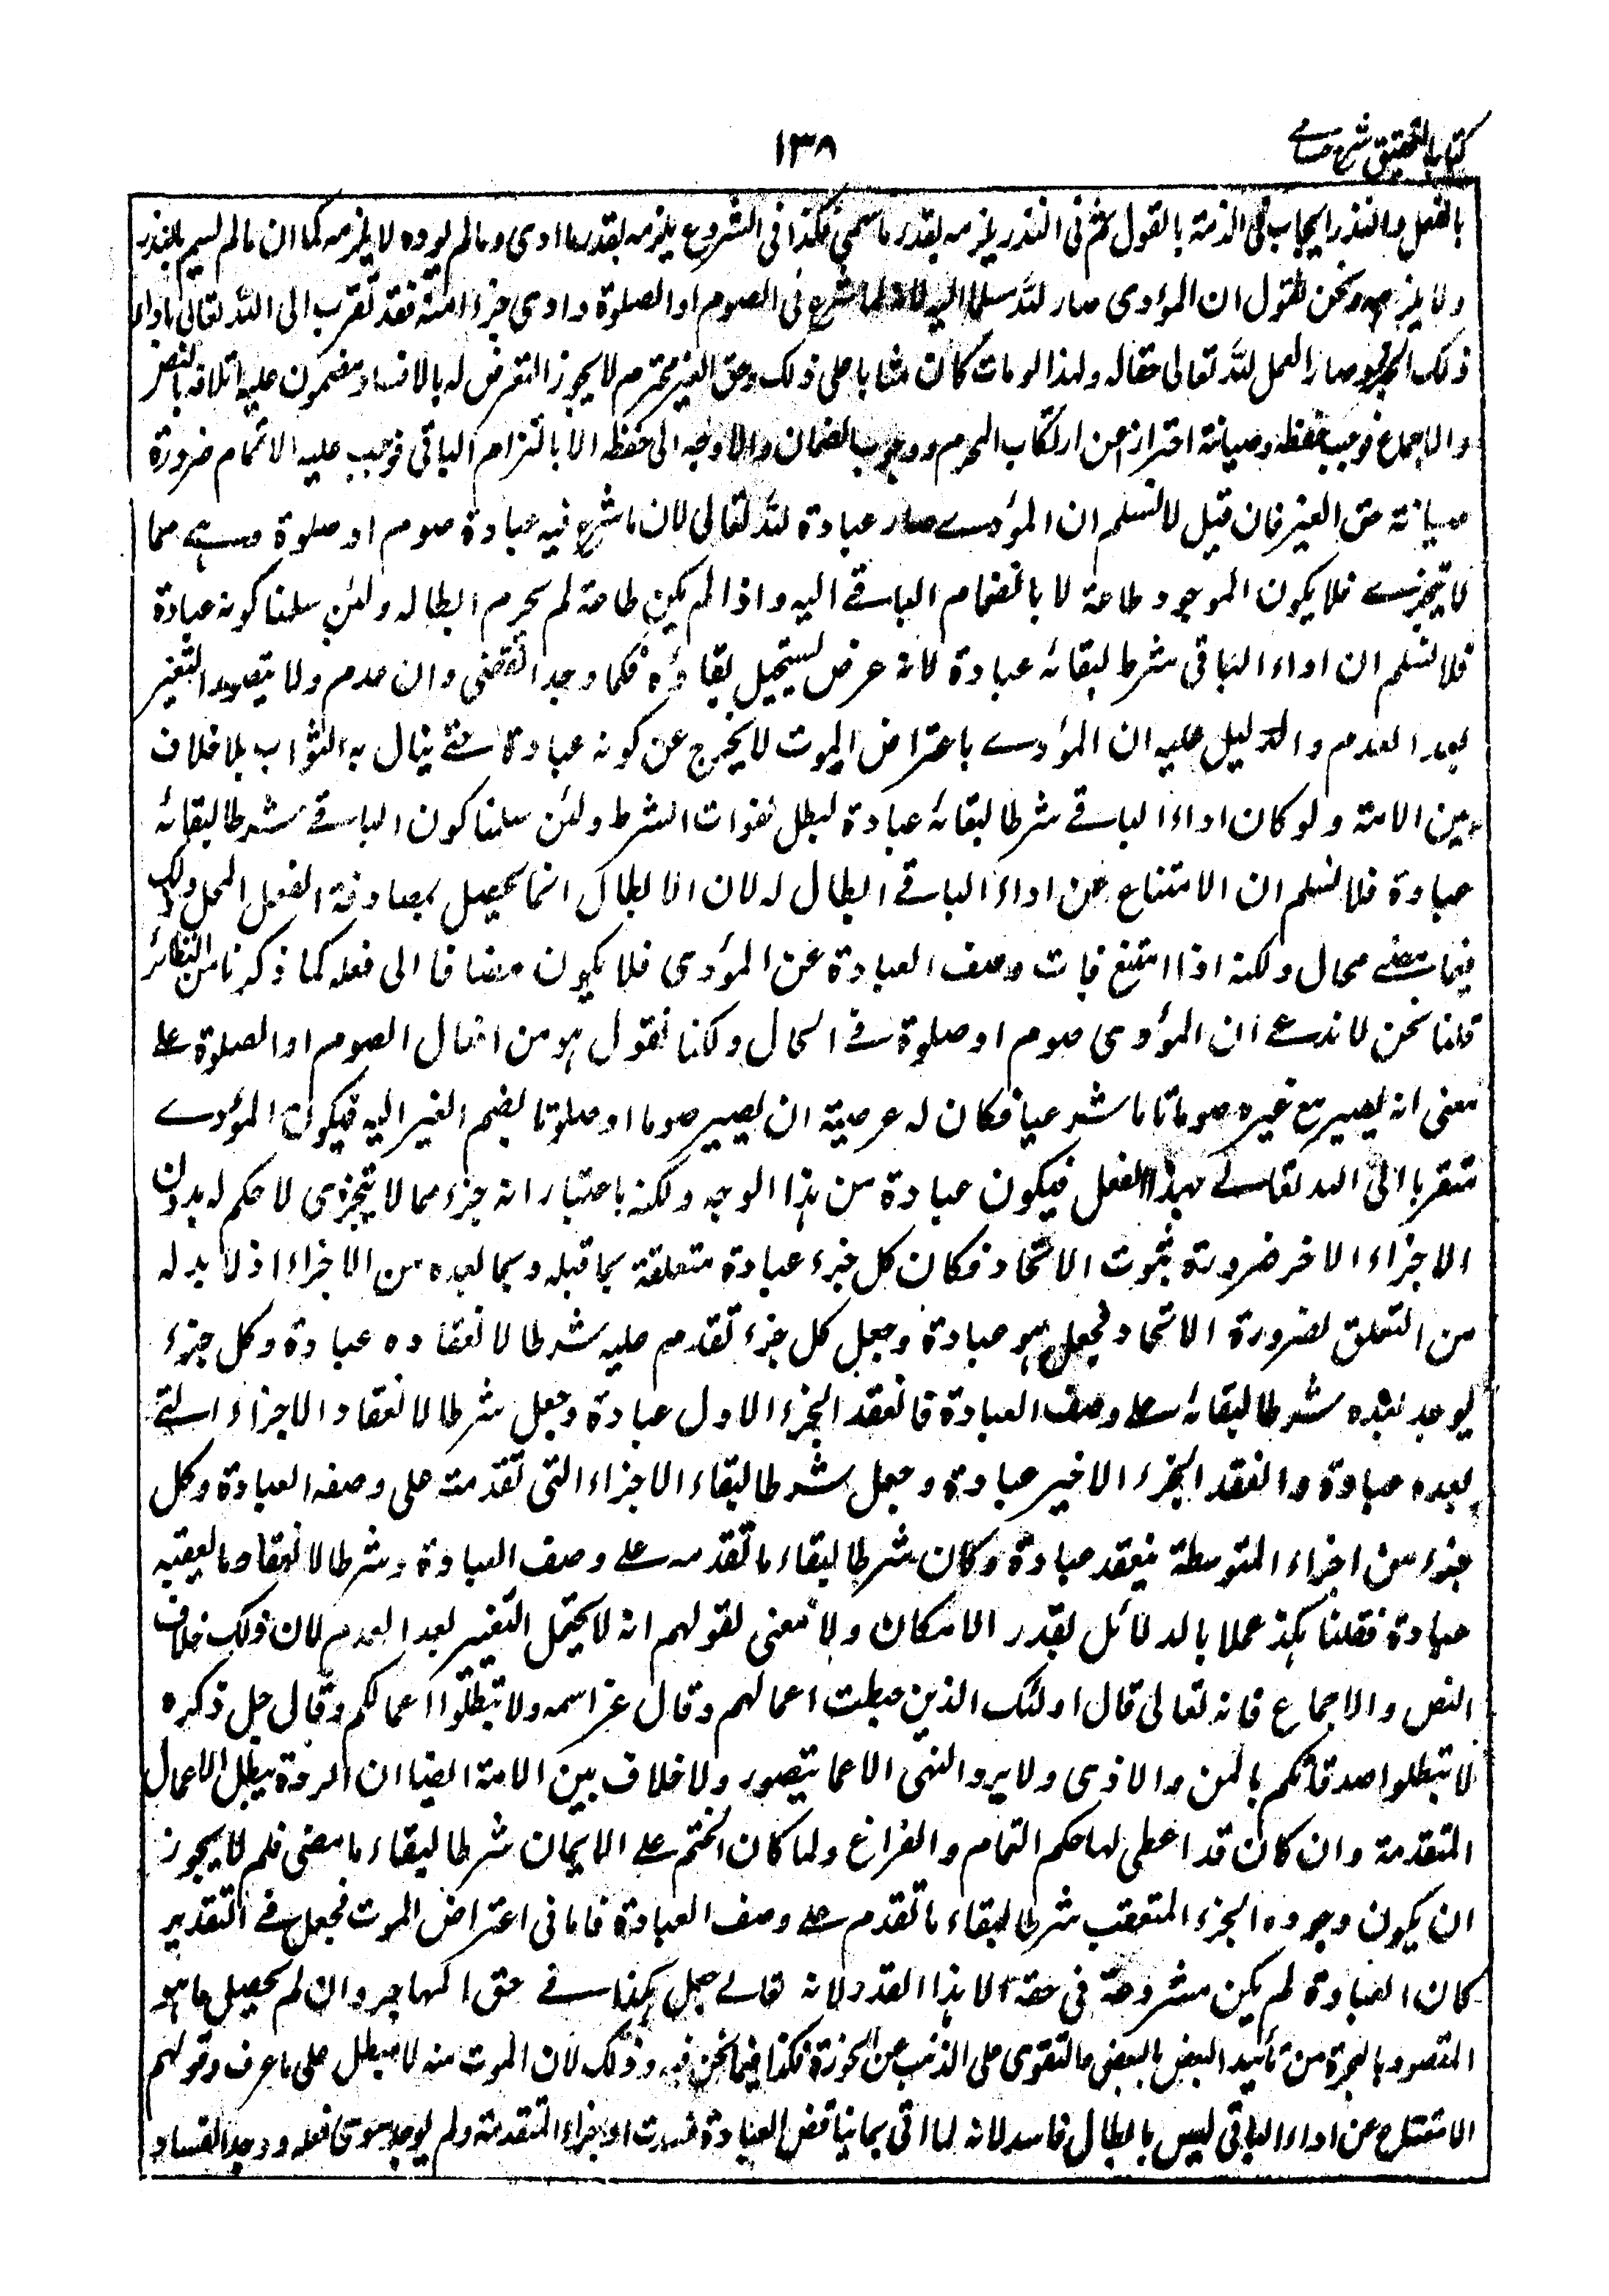 كتاب التحقيق شرح حسامي
١٣٨
بالفعل والنذر ايجاب في الذمة بالقول ثم في النذر يلزمه بقدر ما سمى فكذا في الشروع يلزمه بقدر ما ادى وما لم يوده لا يلزمه كما ان ما لم يسم بالنذر
ولا يلزمه ونحن نقول ان المؤدى صار لله مسلما اليه لانه لما شرع في الصوم او الصلوة وادى جزءا منه فقد تقرب الى الله تعالى باداء
ذلك الجزء وصار العمل لله تعالى حقا له ولهذا لو مات كان مثابا على ذلك وحق الغير محترم لا يجوز التعرض له بالافساد ومضمون عليه اتلافه بالنص
والاجماع فوجب حفظه وصيانة احترازا عن ارتكاب المحرم ووجوب الضمان ولا وجه الى حفظه الا بالتزام الباقى فوجب عليه الاتمام ضرورة
صيانة حق الغير فان قيل لا نسلم ان المؤدے صار عبادة لله تعالى لان ما شرع فيه عبادة صوم او صلوة وهى مما
لا يتجزے فلا يكون الموجود طاعة لا بانضمام الباقے اليه واذا لم يكن طاعة لم يحرم ابطاله ولئن سلمنا كونه عبادة
فلا نسلم ان اداء الباقى شرط لبقائه عبادة لانه عرض يستحيل بقاؤه فكما وجد انقضى وان عدم ولا يتصور التغير
بعد العدم والدليل عليه ان المؤدے باعتراض الموت لا يخرج عن كونه عبادة حتے ينال به الثواب بلا خلاف
بين الامة ولو كان اداء الباقے شرطا لبقائه عبادة لبطل بفوات الشرط ولئن سلمنا كون الباقے شرطا لبقائه
عبادة فلا نسلم ان الامتناع عن اداء الباقے ابطال له لان الابطال انما يحصل بمصادفة الفعل المحل وذلك
فيما مضے محال ولكنه اذا امتنع فات وصف العبادة عن المؤدى فلا يكون مضافا الى فعله كما ذكرنا من النظائر
قلنا نحن لا ندعے ان المؤدى صوم او صلوة فے الحال ولكنا نقول هو من افعال الصوم او الصلوة علے
معنى انه يصير مع غيره صوما تاما شرعيا فكان له عرضية ان يصير صوما او صلوتا بضم الغير اليه فيكون المؤدے
متقربا الى الله تعالے بهذا الفعل فيكون عبادة من هذا الوجه ولكنه باعتبار انه جزء مما لا يتجزى لا حكم له بدون
الاجزاء الاخر ضرورة ثبوت الاتحاد فكان كل جزء عبادة متعلقة بما قبله وبما بعده من الاجزاء اذ لا بد له
من التعلق لضرورة الاتحاد فجعل هو عبادة وجعل كل جزء تقدم عليه شرطا لانعقاده عبادة وكل جزء
يوجد بعده شرطا لبقائه علے وصف العبادة فانعقد الجزء الاول عبادة وجعل شرطا لانعقاد الاجزاء التے
بعده عبادة وانعقد الجزء الاخير عبادة وجعل شرطا لبقاء الاجزاء التى تقدمته على وصفه العبادة وكل
جزء من اجزاء المتوسطة ينعقد عبادة وكان شرطا لبقاء ما تقدمه علے وصف العبادة وشرطا لانعقاد ما يعقبه
عبادة فقلنا هكذا عملا بالدلائل بقدر الامكان ولا معنى لقولهم انه لا يحتمل التغيير بعد العدم لان ذلك خلاف
النص والاجماع فانه تعالى قال اولئك الذين حبطت اعمالهم وقال عز اسمه ولا تبطلوا اعمالكم وقال جل ذكره
لا تبطلوا صدقاتكم بالمن والاذى ولا يرد النهى الا عما يتصور ولا خلاف بين الامة ايضا ان الردة يبطل الاعمال
المتقدمة وان كان قد اعطى لها حكم التمام والفراغ ولما كان الختم علے الايمان شرطا لبقاء ما مضى فلم لا يجوز
ان يكون وجوده الجزء المتعقب شرطا لبقاء ما تقدم علے وصف العبادة فاما فى اعتراض الموت فجعل فے التقدير
كان العبادة لم يكن مشروعة فى حقه الا بهذا القدر لانه تعالے جعل هكذا فے حق المهاجر وان لم يحصل ما هو
المقصود بالهجرة من تأييد البعض بالبعض والتقوى على الذب عن الحوزة فكذا فيما نحن فيه وذلك لان الموت منه لا مبطل على ما عرف وقولهم
الامتناع عن اداء الباقى ليس بابطال فاسد لانه لما اتى بما يناقض العبادة فسدت الاجزاء المتقدمة ولم يوجد سوى فعله ووجد الفساد